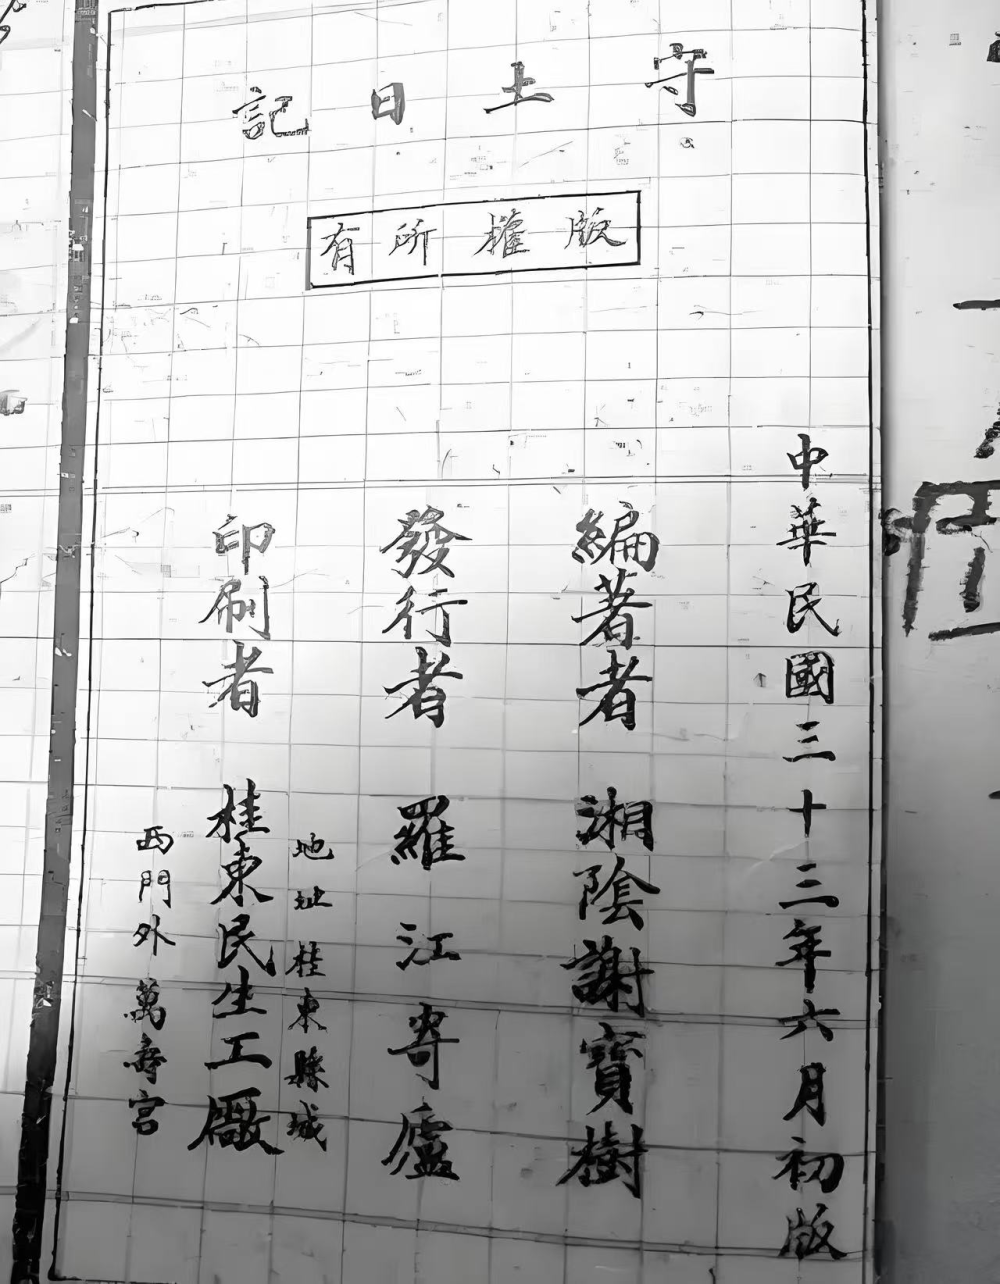 守土日記
版權所有
中華民國三十三年六月初版
編著者 湘陰謝寶樹
發行者 羅江寄廬
地址桂東縣城
印刷者 桂東民生工廠
西門外萬壽宮